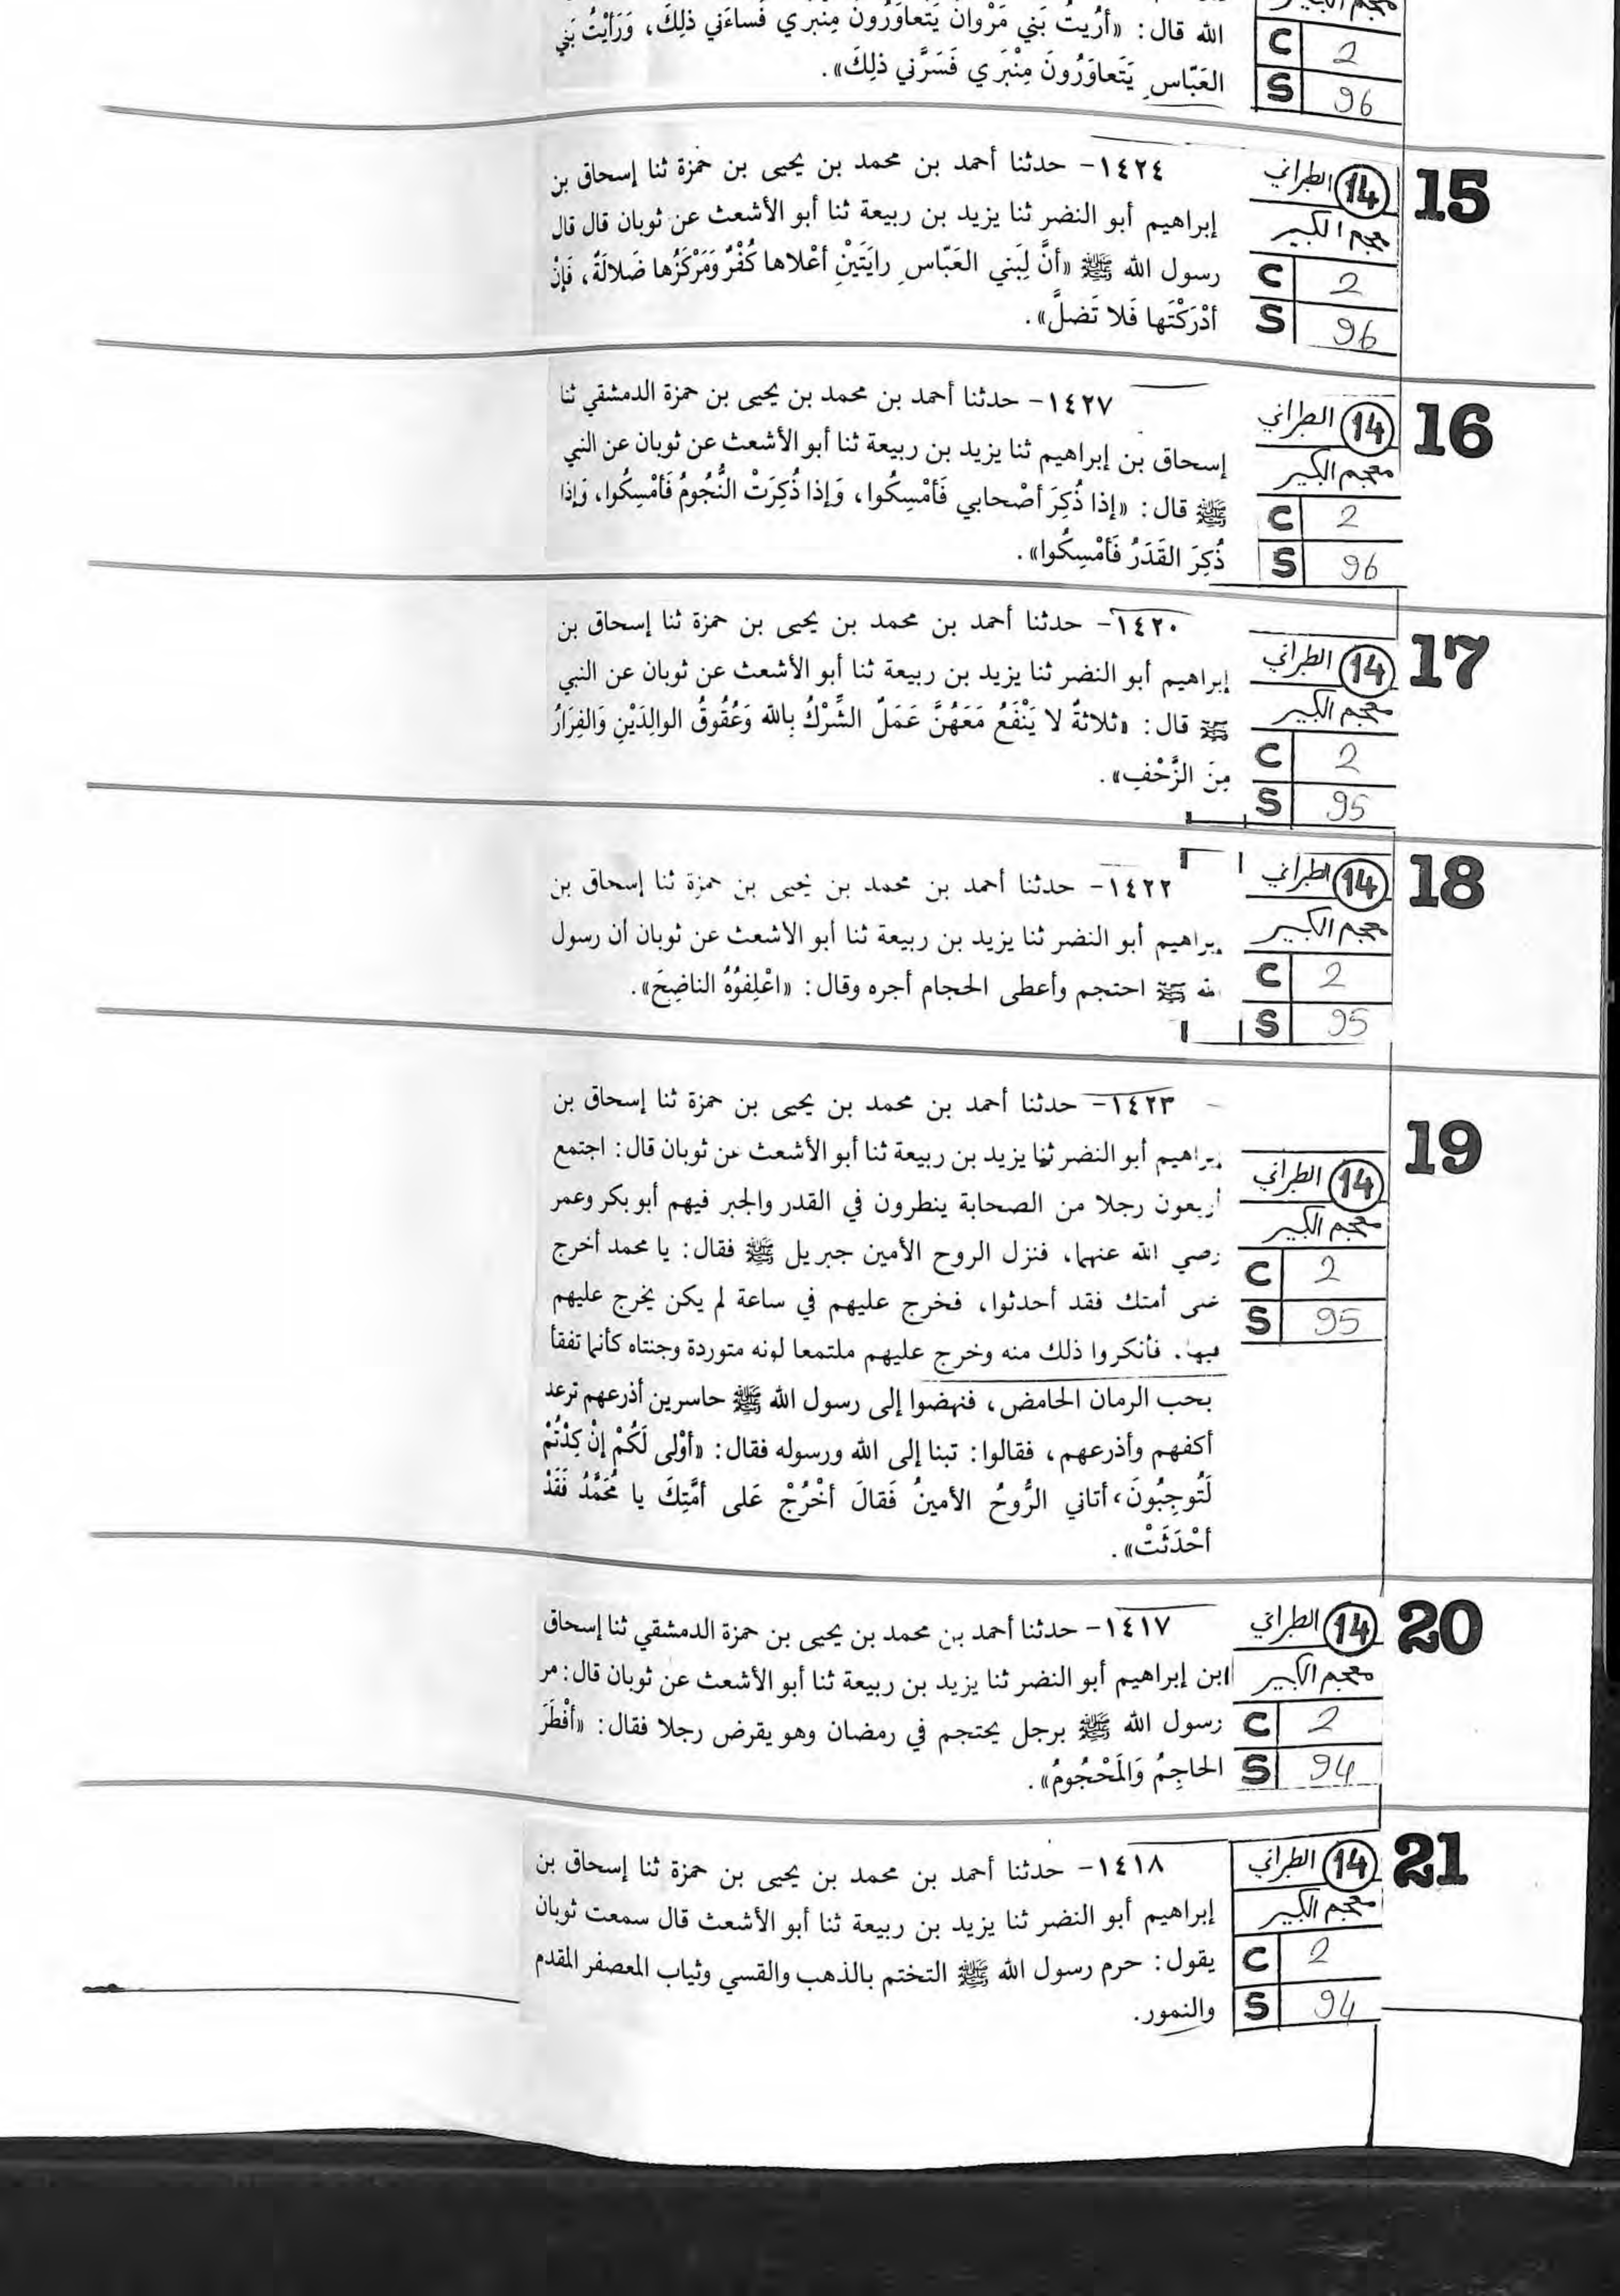 معجم الكبير
الله قال: «أُريتُ بَني مَرْوانَ يَتَعاوَرُونَ مِنْبَري فَساءَني ذلِكَ، وَرَأيْتُ بَني
C 2
العَبّاسِ يَتَعاوَرُونَ مِنْبَري فَسَرَّني ذلِكَ».
S 96
15
14 الطبراني
معجم الكبير
C 2
S 96
١٤٢٤- حدثنا أحمد بن محمد بن يحيى بن حمزة ثنا إسحاق بن
إبراهيم أبو النضر ثنا يزيد بن ربيعة ثنا أبو الأشعث عن ثوبان قال قال
رسول الله ﷺ «أنَّ لِبَني العَبّاسِ رايَتَيْنِ أعْلاها كُفْرٌ وَمَرْكَزُها ضَلالَةٌ، فَإنْ
أدْرَكْتَها فَلا تَضلَّ».
16
14 الطبراني
معجم الكبير
C 2
S 96
١٤٢٧- حدثنا أحمد بن محمد بن يحيى بن حمزة الدمشقي ثنا
إسحاق بن إبراهيم ثنا يزيد بن ربيعة ثنا أبو الأشعث عن ثوبان عن النبي
ﷺ قال: «إذا ذُكِرَ أصْحابي فَأمْسِكُوا، وَإذا ذُكِرَتْ النُّجُومُ فَأمْسِكُوا، وَإذا
ذُكِرَ القَدَرُ فَأمْسِكُوا».
17
14 الطبراني
معجم الكبير
C 2
S 95
١٤٢٠- حدثنا أحمد بن محمد بن يحيى بن حمزة ثنا إسحاق بن
إبراهيم أبو النضر ثنا يزيد بن ربيعة ثنا أبو الأشعث عن ثوبان عن النبي
ﷺ قال: «ثلاثةٌ لا يَنْفَعُ مَعَهُنَّ عَمَلٌ الشِّرْكُ بِالله وَعُقُوقُ الوالِدَيْنِ وَالفِرَارُ
مِنَ الزَّحْفِ».
18
14 الطبراني
معجم الكبير
C 2
S 95
١٤٢٢- حدثنا أحمد بن محمد بن يحيى بن حمزة ثنا إسحاق بن
إبراهيم أبو النضر ثنا يزيد بن ربيعة ثنا أبو الأشعث عن ثوبان أن رسول
الله ﷺ احتجم وأعطى الحجام أجره وقال: «اعْلِفوُهُ الناضِحَ».
19
14 الطبراني
معجم الكبير
C 2
S 95
١٤٢٣- حدثنا أحمد بن محمد بن يحيى بن حمزة ثنا إسحاق بن
إبراهيم أبو النضر ثنا يزيد بن ربيعة ثنا أبو الأشعث عن ثوبان قال: اجتمع
أربعون رجلا من الصحابة ينظرون في القدر والجبر فيهم أبو بكر وعمر
رضي الله عنهما، فنزل الروح الأمين جبريل ﷺ فقال: يا محمد أخرج
على أمتك فقد أحدثوا، فخرج عليهم في ساعة لم يكن يخرج عليهم
فيها. فأنكروا ذلك منه وخرج عليهم ملتمعا لونه متوردة وجنتاه كأنما تفقأ
بحب الرمان الحامض، فنهضوا إلى رسول الله ﷺ حاسرين أذرعهم ترعد
أكفهم وأذرعهم، فقالوا: تبنا إلى الله ورسوله فقال: «أوْلى لَكُمْ إنْ كِدْتُمْ
لَتُوجِبُونَ، أتاني الرُّوحُ الأمينُ فَقالَ أخْرُجْ عَلى أمَّتِكَ يا مُحَمَّدُ فَقَدْ
أحْدَثَتْ».
20
14 الطبراني
معجم الكبير
C 2
S 94
١٤١٧- حدثنا أحمد بن محمد بن يحيى بن حمزة الدمشقي ثنا إسحاق
ابن إبراهيم أبو النضر ثنا يزيد بن ربيعة ثنا أبو الأشعث عن ثوبان قال: مر
رسول الله ﷺ برجل يحتجم في رمضان وهو يقرض رجلا فقال: «أفْطَرَ
الحاجِمُ وَالمَحْجُومُ».
21
14 الطبراني
معجم الكبير
C 2
S 94
١٤١٨- حدثنا أحمد بن محمد بن يحيى بن حمزة ثنا إسحاق بن
إبراهيم أبو النضر ثنا يزيد بن ربيعة ثنا أبو الأشعث قال سمعت ثوبان
يقول: حرم رسول الله ﷺ التختم بالذهب والقسي وثياب المعصفر المقدم
والنمور.